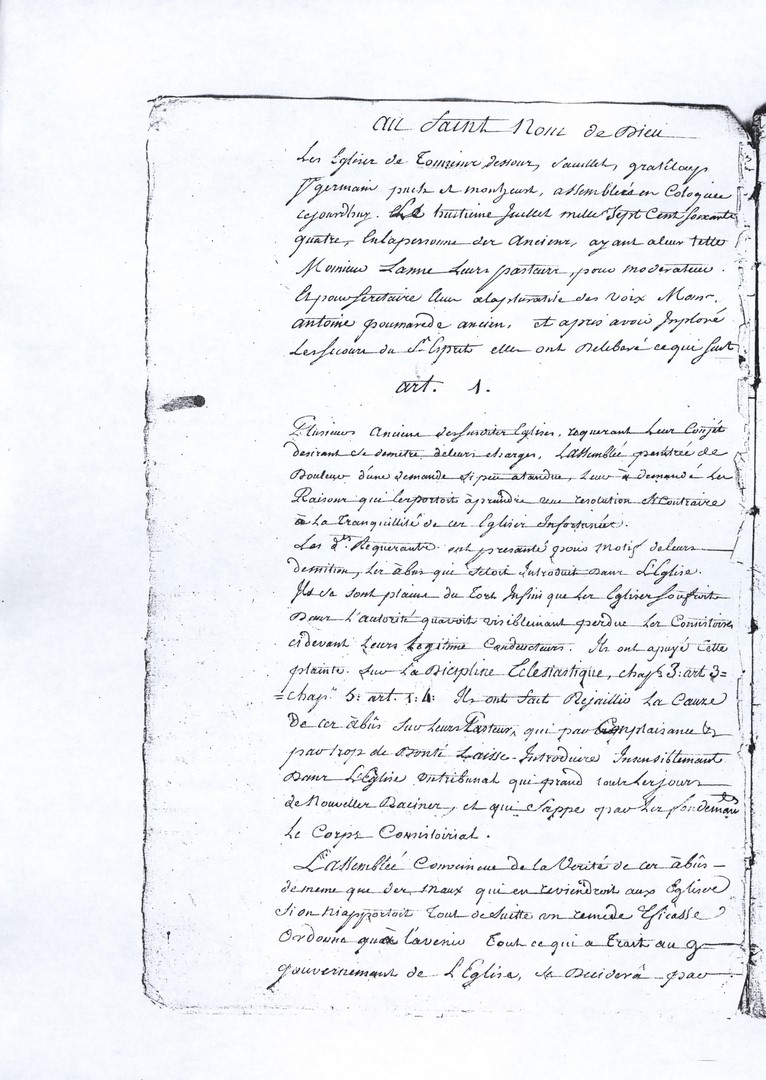 au Saint Nom de Dieu
Les Eglises de Tonneins dessous, Fauillet, grateloup
St germain puch et monheurt, assemblées en Coloque
cejourdhuy huitieme Juillet mille Sept Cent soixante
quatre, En la personne des Anciens, ayant a leur tette
Monsieur Lanne Leurs pasteur, pour moderateur.
Et pour Secretaire Eleu a la pluralité des voix Monr.
antoine poumarede ancien, et apres avoir Imploré
Le Secours du St Esprit elles ont Deliberé ce qui suit
art. 1.
Plusieurs Anciens des susdites Eglises, requerant Leur Congét
desirant se demetre de leurs charges, L'assemblée penetrée de
Douleur d'une demande si peu atandue, Leur a demandé Les
Raisons qui les portoit à prandre une resolution si Contraire
à La Tranquillité de ces Eglises Infortunées.
Les d.ts Requerants ont presanté pour Motif de leurs
demition, Les àbus qui setoit Introduit Dans L'Eglise.
Ils se sont plains du Tort Infini que Les Eglises soufroit
Dans L'autorité quavoit visiblemant perdue Les Consistoires
cidevant Leurs Legitime Conducteurs. Ils ont apuyé cette
plainte sur La Dicipline Eclesiastique, chapr 3: art 3=
=chapr 5: art. 1: 4: Ils ont fait Rejaillir La Cauze
De ces àbûs sur Leurs Pasteur, qui par Complaisance &
par trop de Bonté Laisse Introduire Insansiblemant
Dans L'Eglise un tribunal qui prand touts Les jours
de Nouvelles Racines, et qui Sappe par Les fondemans
Le Corps Consistoirial.
L'assemblée Convincue de la Verité de ces àbûs
de meme que des maux qui en reviendroit aux Eglises
Si on N'apportoit Tout de suitte un remede Eficasse
Ordonne qu'à l'avenir Tout ce qui a Trait au g
gouvernemant de L'Eglise, se Decidera par